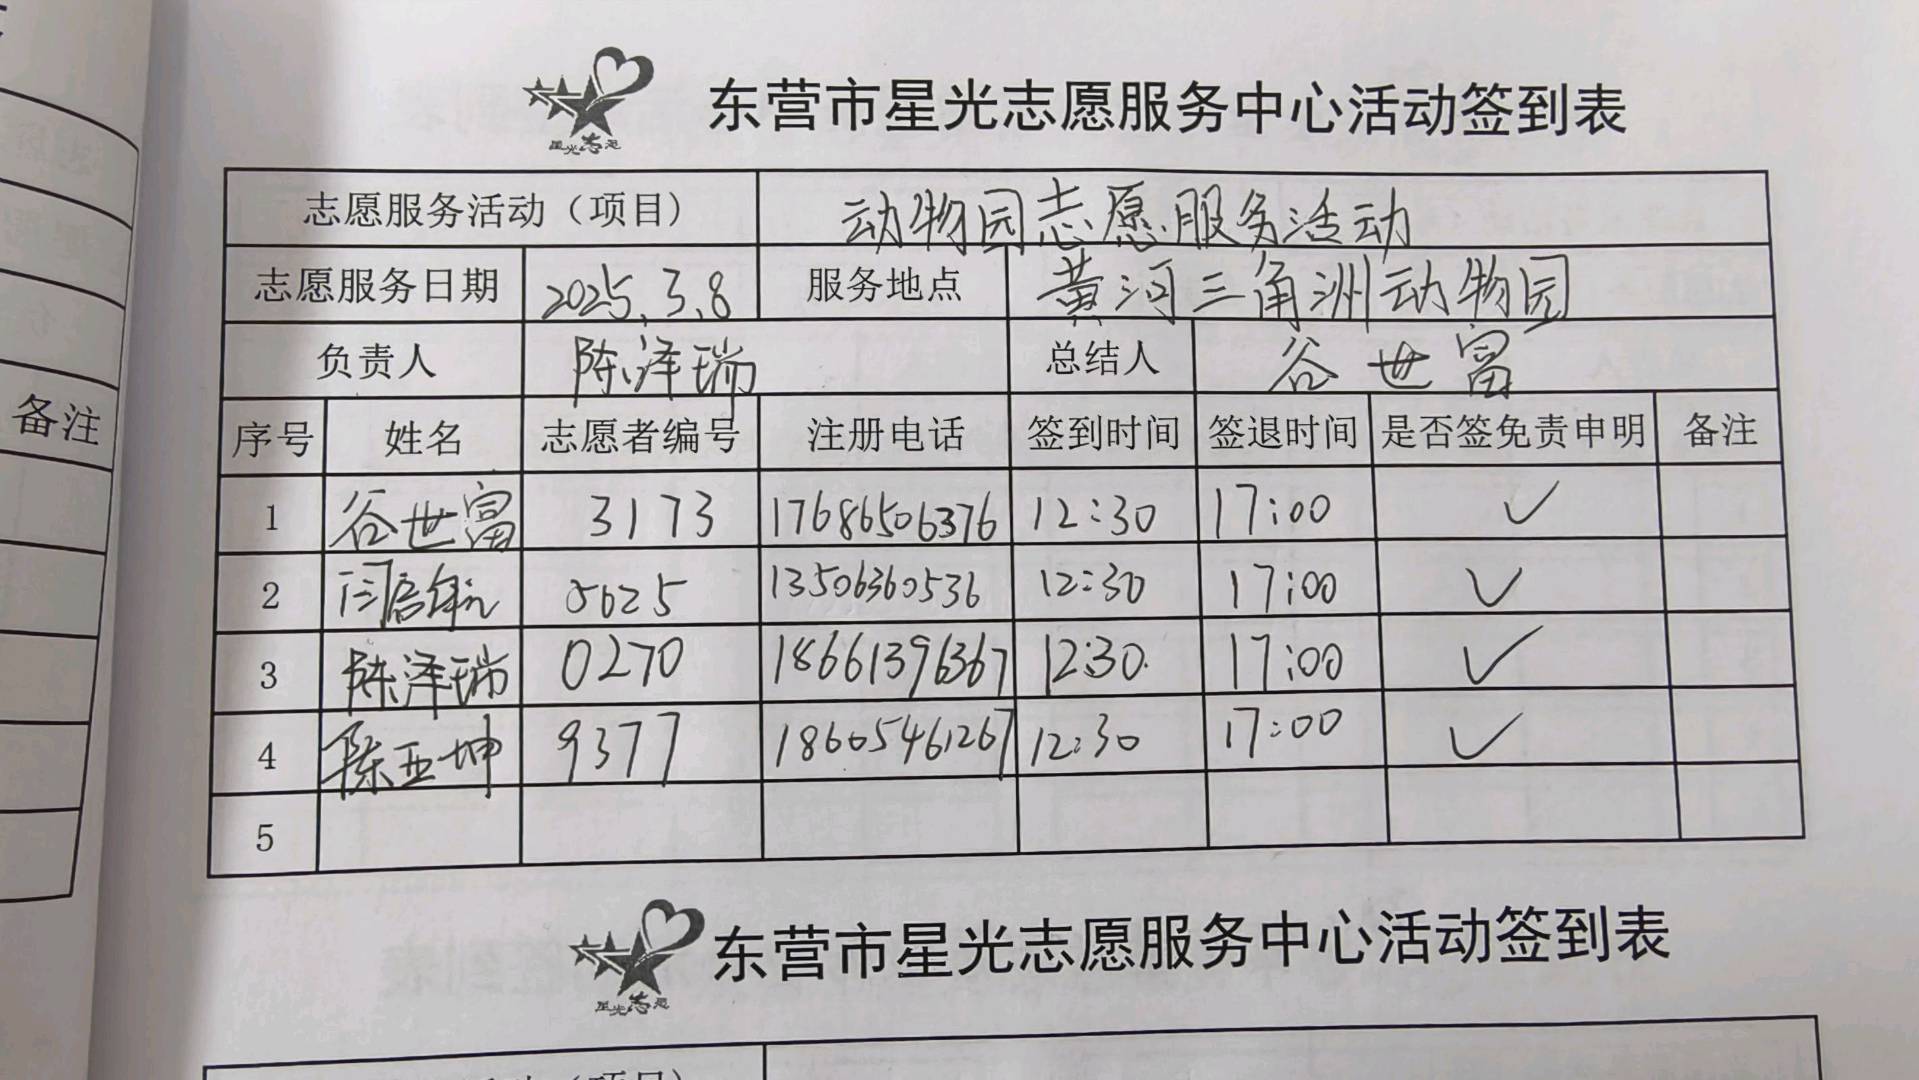 星光志愿
东营市星光志愿服务中心活动签到表
志愿服务活动（项目） 动物园志愿服务活动
志愿服务日期 2025.3.8 服务地点 黄河三角洲动物园
负责人 陈泽瑞 总结人 谷世富
备注
序号 姓名 志愿者编号 注册电话 签到时间 签退时间 是否签免责申明 备注
1 谷世富 3173 17686506376 12:30 17:00 ✓
2 5625 13506360536 12:30 17:00 ✓
3 陈泽瑞 0270 18661396367 12:30 17:00 ✓
4 陈亚坤 9377 18605461267 12:30 17:00 ✓
5
星光志愿
东营市星光志愿服务中心活动签到表